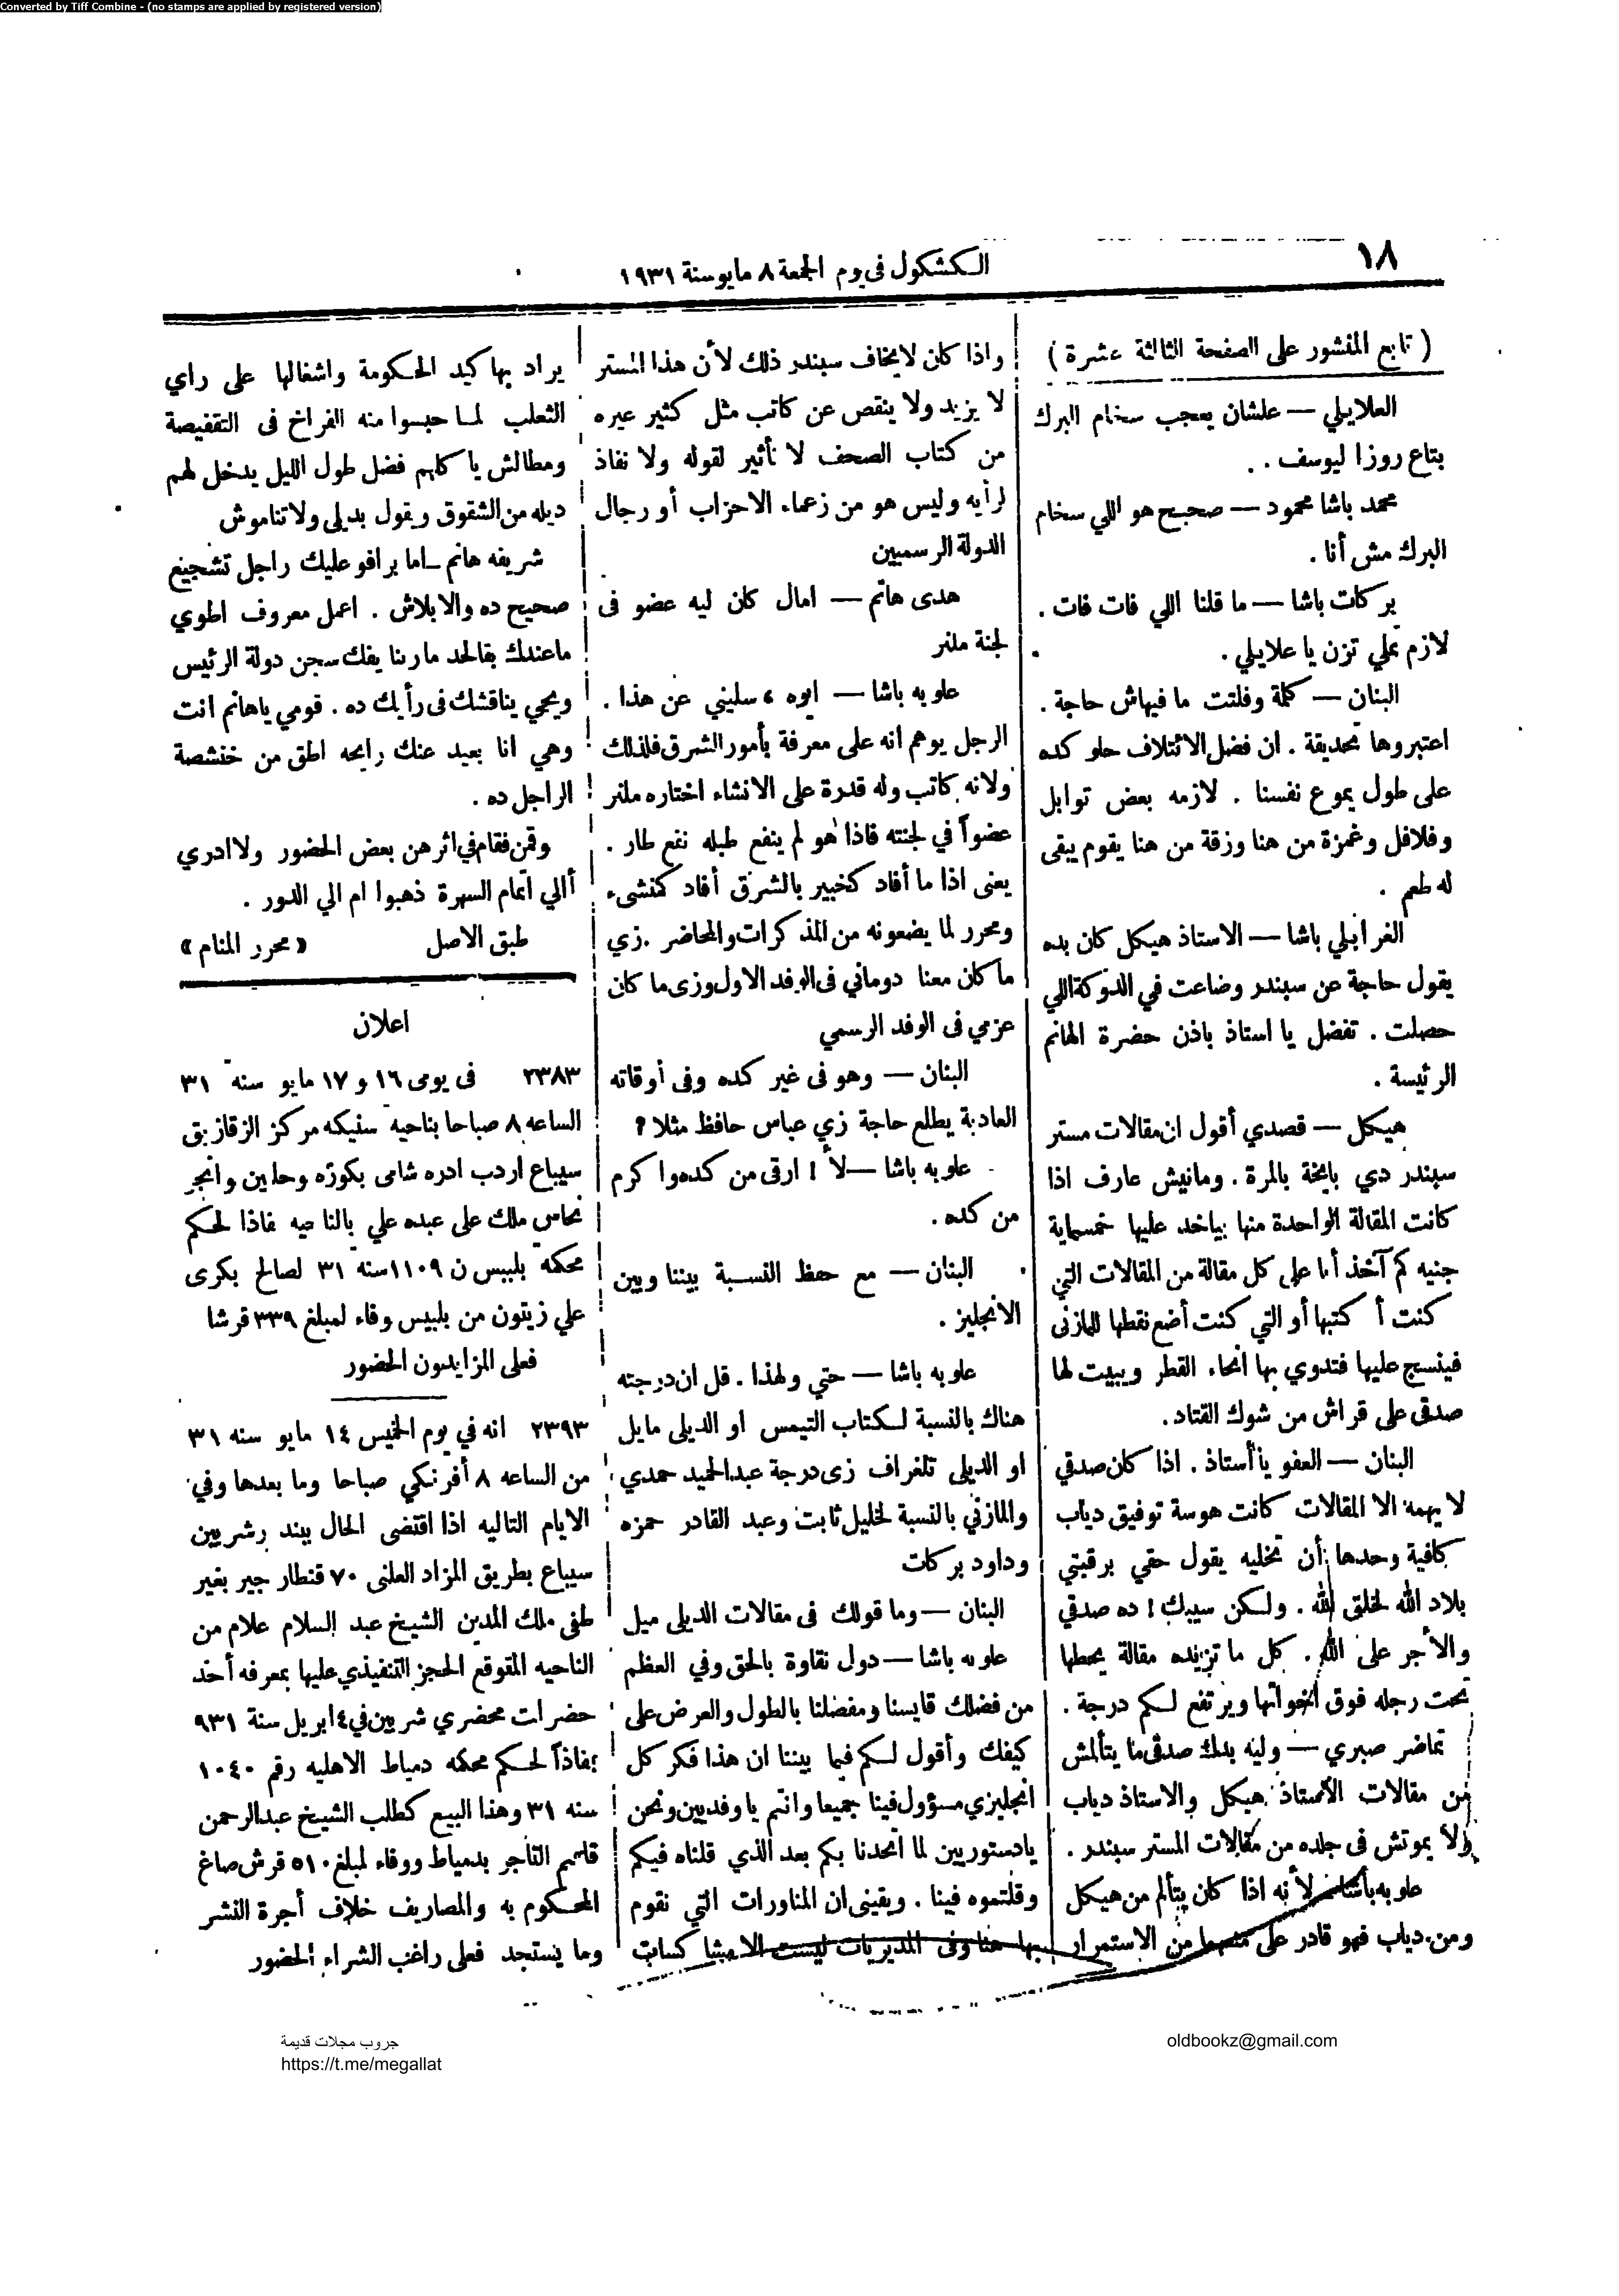 Converted by Tiff Combine - (no stamps are applied by registered version)
١٨
الكشكول فى يوم الجمعة ٨ مايو سنة ١٩٣١
( تابع المنشور على الصفحة الثالثة عشرة )
العلايلي — علشان يعجب سخام البرك
بتاع روزا ليوسف . .
محمد باشا محمود — صحيح هو اللي سخام
البرك مش أنا .
بركات باشا — ما قلنا اللي فات فات .
لازم تملي تزن يا علايلي .
البنان — كلمة وفلتت ما فيهاش حاجة .
اعتبروها تحديقة . ان فضل الائتلاف حلو كده
على طول يموع نفسنا . لازمه بعض توابل
وفلافل وغمزة من هنا وزقة من هنا يقوم يبقى
له طعم .
الغرابلي باشا — الاستاذ هيكل كان بده
يقول حاجة عن سبندر وضاعت في الدوكة اللي
حصلت . تفضل يا استاذ باذن حضرة الهانم
الرئيسة .
هيكل — قصدي أقول ان مقالات مستر
سبندر دي بايخة بالمرة . ومانيش عارف اذا
كانت المقالة الواحدة منها بياخد عليها خمسماية
جنيه كم آخذ أنا على كل مقالة من المقالات التي
كنت أكتبها أو التي كنت أضع نقطها للمازنى
فينسج عليها فتدوي بها انحاء القطر ويبيت لها
صدقى على قراش من شوك القتاد .
البنان — العفو يا أستاذ . اذا كان صدقي
لا يهمه الا المقالات كانت هوسة توفيق دياب
كافية وحدها أن تخليه يقول حقي برقبتي
بلاد الله لخلق الله . ولكن سيبك ! ده صدقي
والأجر على الله . كل ما تزيده مقالة يحطها
تحت رجله فوق اخواتها ويرتفع لكم درجة .
تماضر صبري — وليه بدك صدقى ما يتألمش
من مقالات الأستاذ هيكل والاستاذ دياب
ولا يموتش فى جلده من مقالات المستر سبندر .
علوبه باشا — لأنه اذا كان يتألم من هيكل
ومن دياب فهو قادر على منعهما من الاستمرار
واذا كان لا يخاف سبندر ذلك لأن هذا المستر
لا يزيد ولا ينقص عن كاتب مثل كثير غيره
من كتاب الصحف لا تأثير لقوله ولا نفاذ
لرأيه وليس هو من زعماء الاحزاب أو رجال
الدولة الرسميين
هدى هانم — امال كان ليه عضو فى
لجنة ملنر
علوبه باشا — ايوه ، سليني عن هذا .
الرجل يوهم انه على معرفة بأمور الشرق فلذلك
ولانه كاتب وله قدرة على الانشاء اختاره ملنر
عضواً في لجنته فاذا هو لم ينفع طبله نفع طار .
يعنى اذا ما أفاد كخبير بالشرق أفاد كمنشىء
ومحرر لما يضعونه من المذكرات والمحاضر . زي
ما كان معنا دوماني فى الوفد الاول وزى ما كان
عزمي فى الوفد الرسمي
البنان — وهو فى غير كده وفى أوقاته
العادية يطلع حاجة زي عباس حافظ مثلا ؟
علوبه باشا — لأ ! ارقى من كده واكرم
من كده .
البنان — مع حفظ النسبة بيننا وبين
الانجليز .
علوبه باشا — حتي ولهذا . قل ان درجته
هناك بالنسبة لكتاب التيمس او الديلى مايل
او الديلى تلغراف زى درجة عبد الحميد حمدي
والمازني بالنسبة لخليل ثابت وعبد القادر حمزه
وداود بركات
البنان — وما قولك فى مقالات الديلى ميل
علوبه باشا — دول نقاوة بالحق وفي العظم
من فضلك قايسنا ومفضلنا بالطول والعرض على
كيفك وأقول لكم فيما بيننا ان هذا فكر كل
انجليزي مسؤول فينا جميعا وانتم يا وفديين ونحن
يا دستوريين لما اتحدنا بكم بعد الذي قلناه فيكم
وقلتموه فينا . ويقينى ان المناورات التي نقوم
بها هنا وفى المديريات ليست الا
يراد بها كيد الحكومة واشغالها على راي
الثعلب لما حبسوا منه الفراخ فى التقفيصة
ومطالش ياكلهم فضل طول الليل يدخل لهم
ديله من الشقوق ويقول بديلى ولا تناموش
شريفه هانم — اما برافو عليك راجل تشجيع
صحيح ده والا بلاش . اعمل معروف اطوي
ماعندك بقا لحد ما ربنا يفك سجن دولة الرئيس
ويجي يناقشك فى رأيك ده . قومي يا هانم انت
وهي انا بعيد عنك رايحه اطق من خنشصة
الراجل ده .
وقمن فقام في اثرهن بعض الحضور ولا ادري
أالي اتمام السهرة ذهبوا ام الي الدور .
طبق الاصل « محرر المنام »
اعلان
٢٣٨٣ فى يومى ١٦ و ١٧ مايو سنه ٣١
الساعه ٨ صباحا بناحيه سنيكه مركز الزقازيق
سيباع اردب ادره شامى بكوزه وحلين وانجر
نحاس ملك على عبده علي بالناحيه نفاذا لحكم
محكمه بلبيس ن ١١٠٩ سنه ٣١ لصالح بكرى
علي زيتون من بلبيس وفاء لمبلغ ٣٣٩ قرشا
فعلى المزايدون الحضور
٢٣٩٣ انه في يوم الخميس ١٤ مايو سنه ٣١
من الساعه ٨ أفرنكي صباحا وما بعدها وفي
الايام التاليه اذا اقتضى الحال ببندر شربين
سيباع بطريق المزاد العلنى ٧٠ قنطار جير بغير
طفى ملك المدين الشيخ عبد السلام علام من
الناحيه المتوقع الحجز التنفيذي عليها بمعرفه أحد
حضرات محضري شربين في ٤ ابريل سنة ٩٣١
نفاذاً لحكم محكمه دمياط الاهليه رقم ١٠٤٠
سنه ٣١ وهذا البيع كطلب الشيخ عبد الرحمن
قاسم التاجر بدمياط ووفاء لمبلغ ٥١٠ قرش صاغ
المحكوم به والمصاريف خلاف أجرة النشر
وما يستجد فعلى راغب الشراء الحضور
جروب مجلات قديمة
https://t.me/megallat
oldbookz@gmail.com